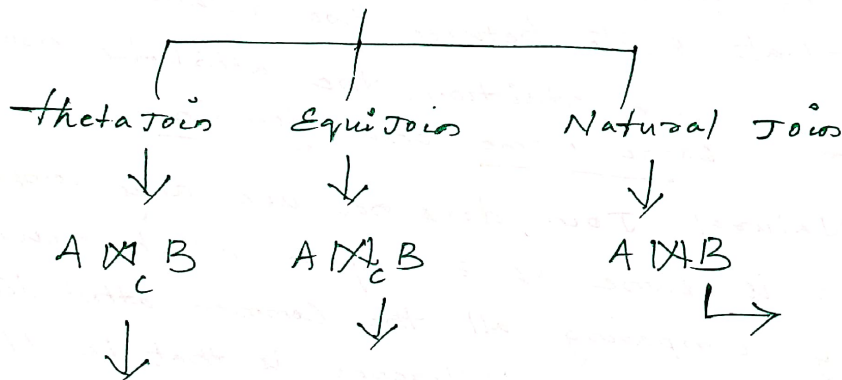 Theta Join Equi Join Natural Join
A ⋈c B A ⋈c B A ⋈ B